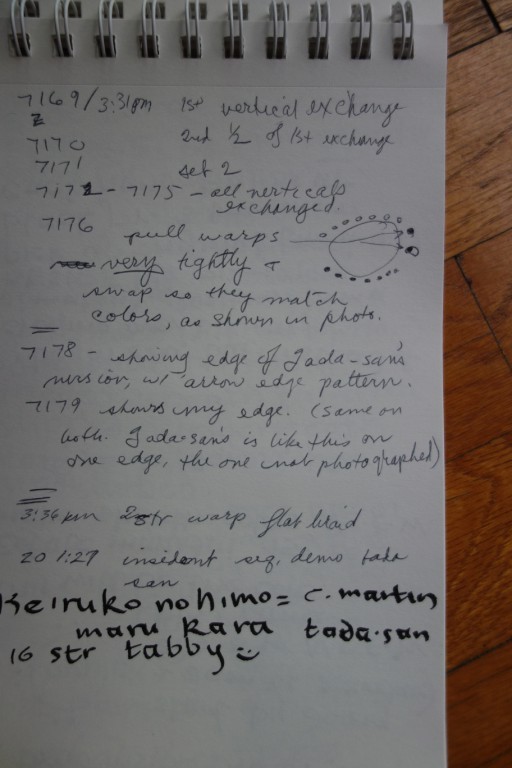 7169/3:31pm 1st vertical exchange
7170 2nd 1/2 of 1st exchange
7171 set 2
7172 - 7175 - all verticals
exchanged.
7176 pull warps
very tightly +
swap so they match
colors, as shown in photo.
7178 - showing edge of Tada-san's
version, w/ arrow edge pattern.
7179 shows my edge. (same on
both. Tada-san's is like this on
one edge, the one not photographed)
3:36 pm str warp flat braid
20 1:27 seq, demo tada
san
Keiruko no himo = c. martin
maru kara tada-san
16 str tabby